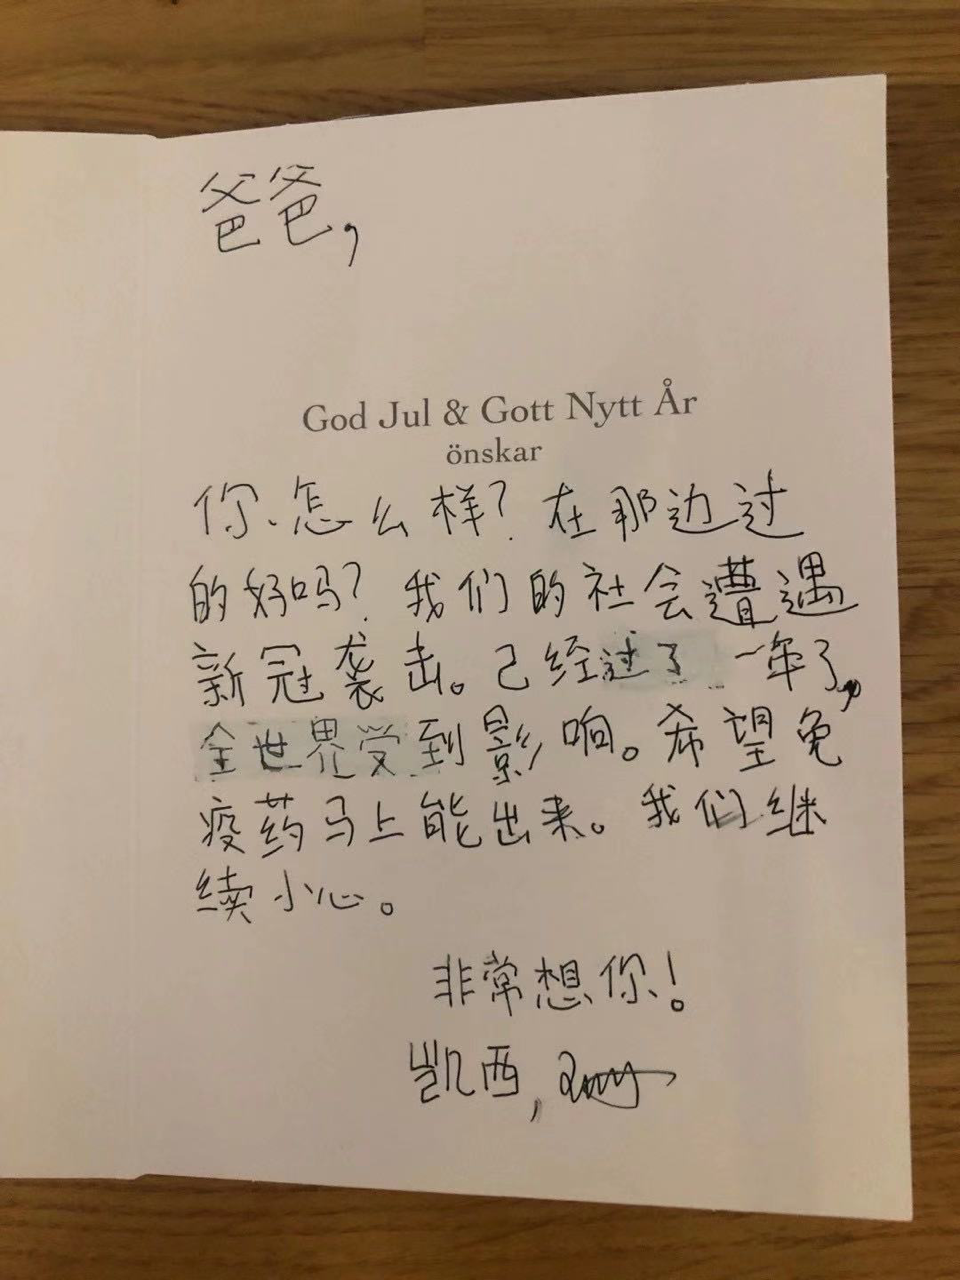 爸爸，
God Jul & Gott Nytt År
önskar
你怎么样？在那边过
的好吗？我们的社会遭遇
新冠袭击。已经过了一年了，
全世界受到影响。希望免
疫药马上能出来。我们继
续小心。
非常想你！
凯西，